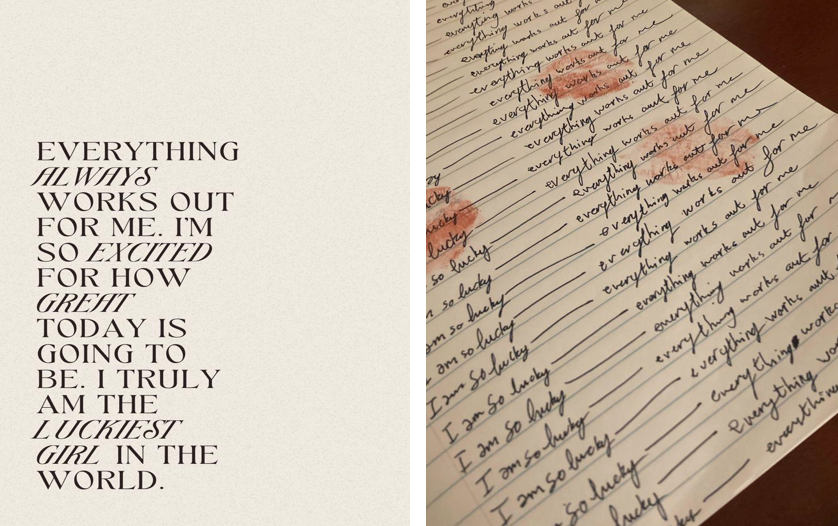 EVERYTHING
ALWAYS
WORKS OUT
FOR ME. I'M
SO EXCITED
FOR HOW
GREAT
TODAY IS
GOING TO
BE. I TRULY
AM THE
LUCKIEST
GIRL IN THE
WORLD.
everything works out for me
everything works out for me
everything works out for me
everything works out for me
everything works out for me
everything works out for me
everything works out for me
everything works out for me
everything works out for me
everything works out for me
lucky everything works out for me
lucky everything works out for me
lucky everything works out for me
so lucky everything works out for me
m so lucky everything works out for me
am so lucky everything works out for
I am so lucky everything works out for
I am so lucky everything works out
I am so lucky everything works
I am so lucky everything works
I am so lucky everything
I am so lucky everything
so lucky
lucky